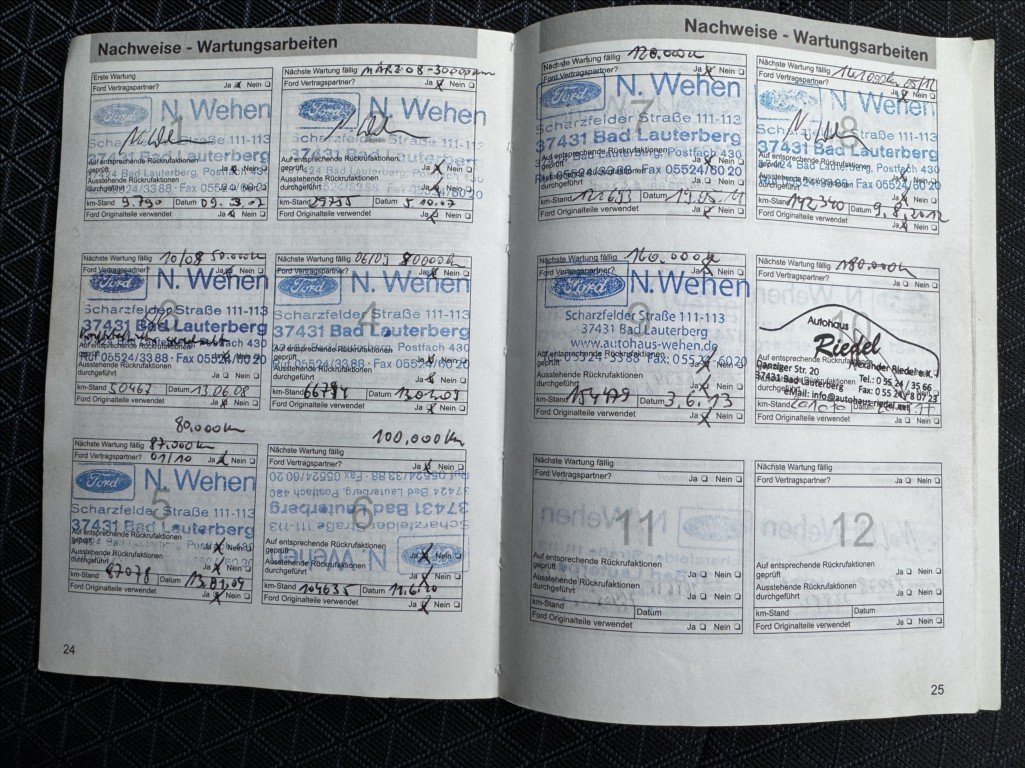 Nachweise - Wartungsarbeiten
Erste Wartung
Ford Vertragspartner? Ja Nein
Ford N. Wehen
1
Scharzfelder Straße 111-113
37431 Bad Lauterberg
Auf entsprechende Rückrufaktionen
geprüft Ja Nein
Ausstehende Rückrufaktionen
durchgeführt Ja Nein
km-Stand 9.790 Datum
Ford Originalteile verwendet Ja Nein
Nächste Wartung fällig MÄRZ 08 - 30000km
Ford Vertragspartner? Ja Nein
Ford N. Wehen
2
Scharzfelder Straße 111-113
37431 Bad Lauterberg
Auf entsprechende Rückrufaktionen
geprüft Ja Nein
Ausstehende Rückrufaktionen
durchgeführt Ja Nein
km-Stand 29755 Datum 5.10.07
Ford Originalteile verwendet Ja Nein
Nächste Wartung fällig 10/08 50.000km
Ford Vertragspartner? Ja Nein
Ford N. Wehen
3
Scharzfelder Straße 111-113
37431 Bad Lauterberg
Ruf 05524/3388 · Fax 05524/6020
geprüft Ja Nein
Ausstehende Rückrufaktionen
durchgeführt Ja Nein
km-Stand 50467 Datum 13.06.08
Ford Originalteile verwendet Ja Nein
Nächste Wartung fällig 06/09 80000km
Ford Vertragspartner? Ja Nein
Ford N. Wehen
4
Scharzfelder Straße 111-113
37431 Bad Lauterberg
Auf entsprechende Rückrufaktionen
geprüft Ja Nein
Ausstehende Rückrufaktionen
durchgeführt Ja Nein
km-Stand Datum
Ford Originalteile verwendet Ja Nein
80.000km
Nächste Wartung fällig 87.000km
Ford Vertragspartner? 01/10 Ja Nein
Ford N. Wehen
5
Scharzfelder Straße 111-113
37431 Bad Lauterberg
Auf entsprechende Rückrufaktionen
geprüft Ja Nein
Ausstehende Rückrufaktionen
durchgeführt Ja Nein
km-Stand 87078 Datum
Ford Originalteile verwendet Ja Nein
100.000km
Nächste Wartung fällig
Ford Vertragspartner? Ja Nein
Ruf 05524/3388 Fax 05524/6020
37424 Bad Lauterberg, Postfach 430
37431 Bad Lauterberg
Scharzfelder Straße 111-113
Ford N. Wehen
6
Auf entsprechende Rückrufaktionen
geprüft Ja Nein
Ausstehende Rückrufaktionen
durchgeführt Ja Nein
km-Stand 104635 Datum
Ford Originalteile verwendet Ja Nein
24
Nachweise - Wartungsarbeiten
Nächste Wartung fällig 120.000km
Ford Vertragspartner? Ja Nein
Ford N. Wehen
7
Scharzfelder Straße 111-113
37431 Bad Lauterberg
Bad Lauterberg, Postfach 430
Ruf 05524/3388 · Fax 05524/6020
durchgeführt Ja Nein
km-Stand 122693 Datum
Ford Originalteile verwendet Ja Nein
Nächste Wartung fällig
Ford Vertragspartner? Ja Nein
Ford N. Wehen
8
Scharzfelder Straße 111-113
37431 Bad Lauterberg
Auf entsprechende Rückrufaktionen
geprüft Ja Nein
Ausstehende Rückrufaktionen
durchgeführt Ja Nein
km-Stand 142340 Datum 9.8.2012
Ford Originalteile verwendet Ja Nein
Nächste Wartung fällig 160.000km
Ford Vertragspartner? Ja Nein
Ford N. Wehen
9
Scharzfelder Straße 111-113
37431 Bad Lauterberg
www.autohaus-wehen.de
Ruf 05524-3388 · Fax: 05524-6020
Ausstehende Rückrufaktionen
durchgeführt Ja Nein
km-Stand 154479 Datum 3.6.13
Ford Originalteile verwendet Ja Nein
Nächste Wartung fällig 180.000km
Ford Vertragspartner? Ja Nein
10
Autohaus
Riedel
Alexander Riedel e.K.
Danziger Str. 20
37431 Bad Lauterberg
Tel.: 0 55 24 / 35 66
Fax: 0 55 24 / 8 07 23
eMail: info@autohaus-riedel.net
km-Stand Datum
Ford Originalteile verwendet Ja Nein
Nächste Wartung fällig
Ford Vertragspartner? Ja Nein
11
Auf entsprechende Rückrufaktionen
geprüft Ja Nein
Ausstehende Rückrufaktionen
durchgeführt Ja Nein
km-Stand Datum
Ford Originalteile verwendet Ja Nein
Nächste Wartung fällig
Ford Vertragspartner? Ja Nein
12
Auf entsprechende Rückrufaktionen
geprüft Ja Nein
Ausstehende Rückrufaktionen
durchgeführt Ja Nein
km-Stand Datum
Ford Originalteile verwendet Ja Nein
25